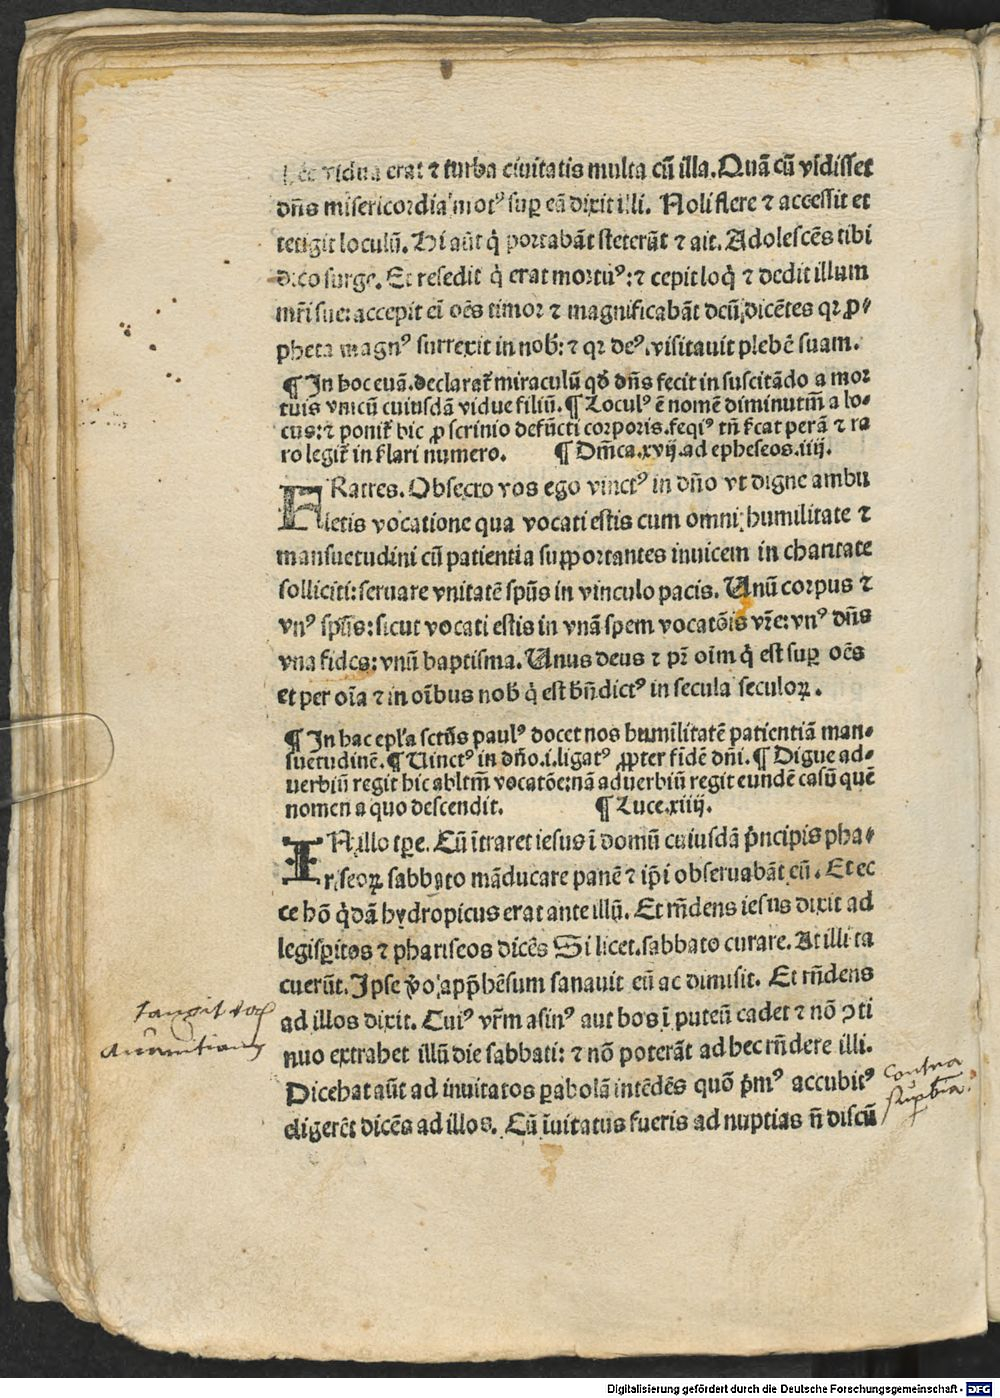 hec vidua erat ⁊ turba ciuitatis multa cū illa. Quā cū vidisset
dñs misericordia motꝰ suꝑ eā dixit illi. Noli flere ⁊ accessit et
tetigit loculū. Hi aūt q̇ portabāt steterāt ⁊ ait. Adolescēs tibi
dico surge. Et resedit q̇ erat mortuꝰ: ⁊ cepit loq̇ ⁊ dedit illum
mr̄i sue: accepit eī oēs timor ⁊ magnificabāt deū, dicētes qꝛ ꝓ-
pheta magnꝰ surrexit in nob̄: ⁊ qꝛ deꝰ visitauit plebē suam.
¶ In hoc euā. declarat̄ miraculū qd̄ dñs fecit in suscitādo a mor
tuis vnicū cuiusdā vidue filiū. ¶ Loculꝰ ē nomē diminutiū a lo-
cus: ⁊ ponit̄ hic ꝓ scrinio defūcti corporis. seqiꝰ tñ s̄cat perā ⁊ ra
ro legit̄ in s̄lari numero. ¶ Dm̄ca. xvij. ad epheseos. iiij.
FRatres. Obsecro vos ego vinctꝰ in dño vt digne ambu
letis vocatione qua vocati estis cum omni humilitate ⁊
mansuetudini cū patientia supportantes inuicem in charitate
solliciti: seruare vnitatē spūs in vinculo pacis. Unū corpus ⁊
vnꝰ spūs: sicut vocati estis in vnā spem vocatōis vr̄e: vnꝰ dñs
vna fides: vnū baptisma. Unus deus ⁊ pr̄ oīm q̇ est suꝑ oēs
et per oīa ⁊ in oībus nob̄ q̇ est bn̄dictꝰ in secula seculoꝝ.
¶ In hac epl'a sctūs paulꝰ docet nos humilitatē patientiā man-
suetudinē. ¶ Vinctꝰ in dño. i. ligatꝰ ꝓpter fidē dñi. ¶ Digne ad-
uerbiū regit hic abltm̄ vocatōe: nā aduerbiū regit eundē casū quē
nomen a quo descendit. ¶ Luce. xiiij.
IN illo tꝑe. Cū ītraret iesus ī domū cuiusdā p̄ncipis pha-
riseoꝝ sabbato māducare panē ⁊ ip̄i obseruabāt eū. Et ec
ce hō q̇dā hydropicus erat ante illū. Et rn̄dens iesus dixit ad
legisꝑitos ⁊ phariseos dicēs Si licet sabbato curare. At illi ta
cuerūt. Ipse v̄o app̄hēsum sanauit eū ac dimisit. Et rn̄dens
ad illos dixit. Cuiꝰ vr̄m asinꝰ aut bos ī puteū cadet ⁊ nō ꝯti
nuo extrahet illū die sabbati: ⁊ nō poterāt ad hec rn̄dere illi.
Dicebat aūt ad inuitatos ꝑabolā intēdēs quō p̄mꝰ accubitꝰ
eligerēt dicēs ad illos. Cū īuitatus fueris ad nuptias n̄ discū
tangit
contra
suꝑbiā